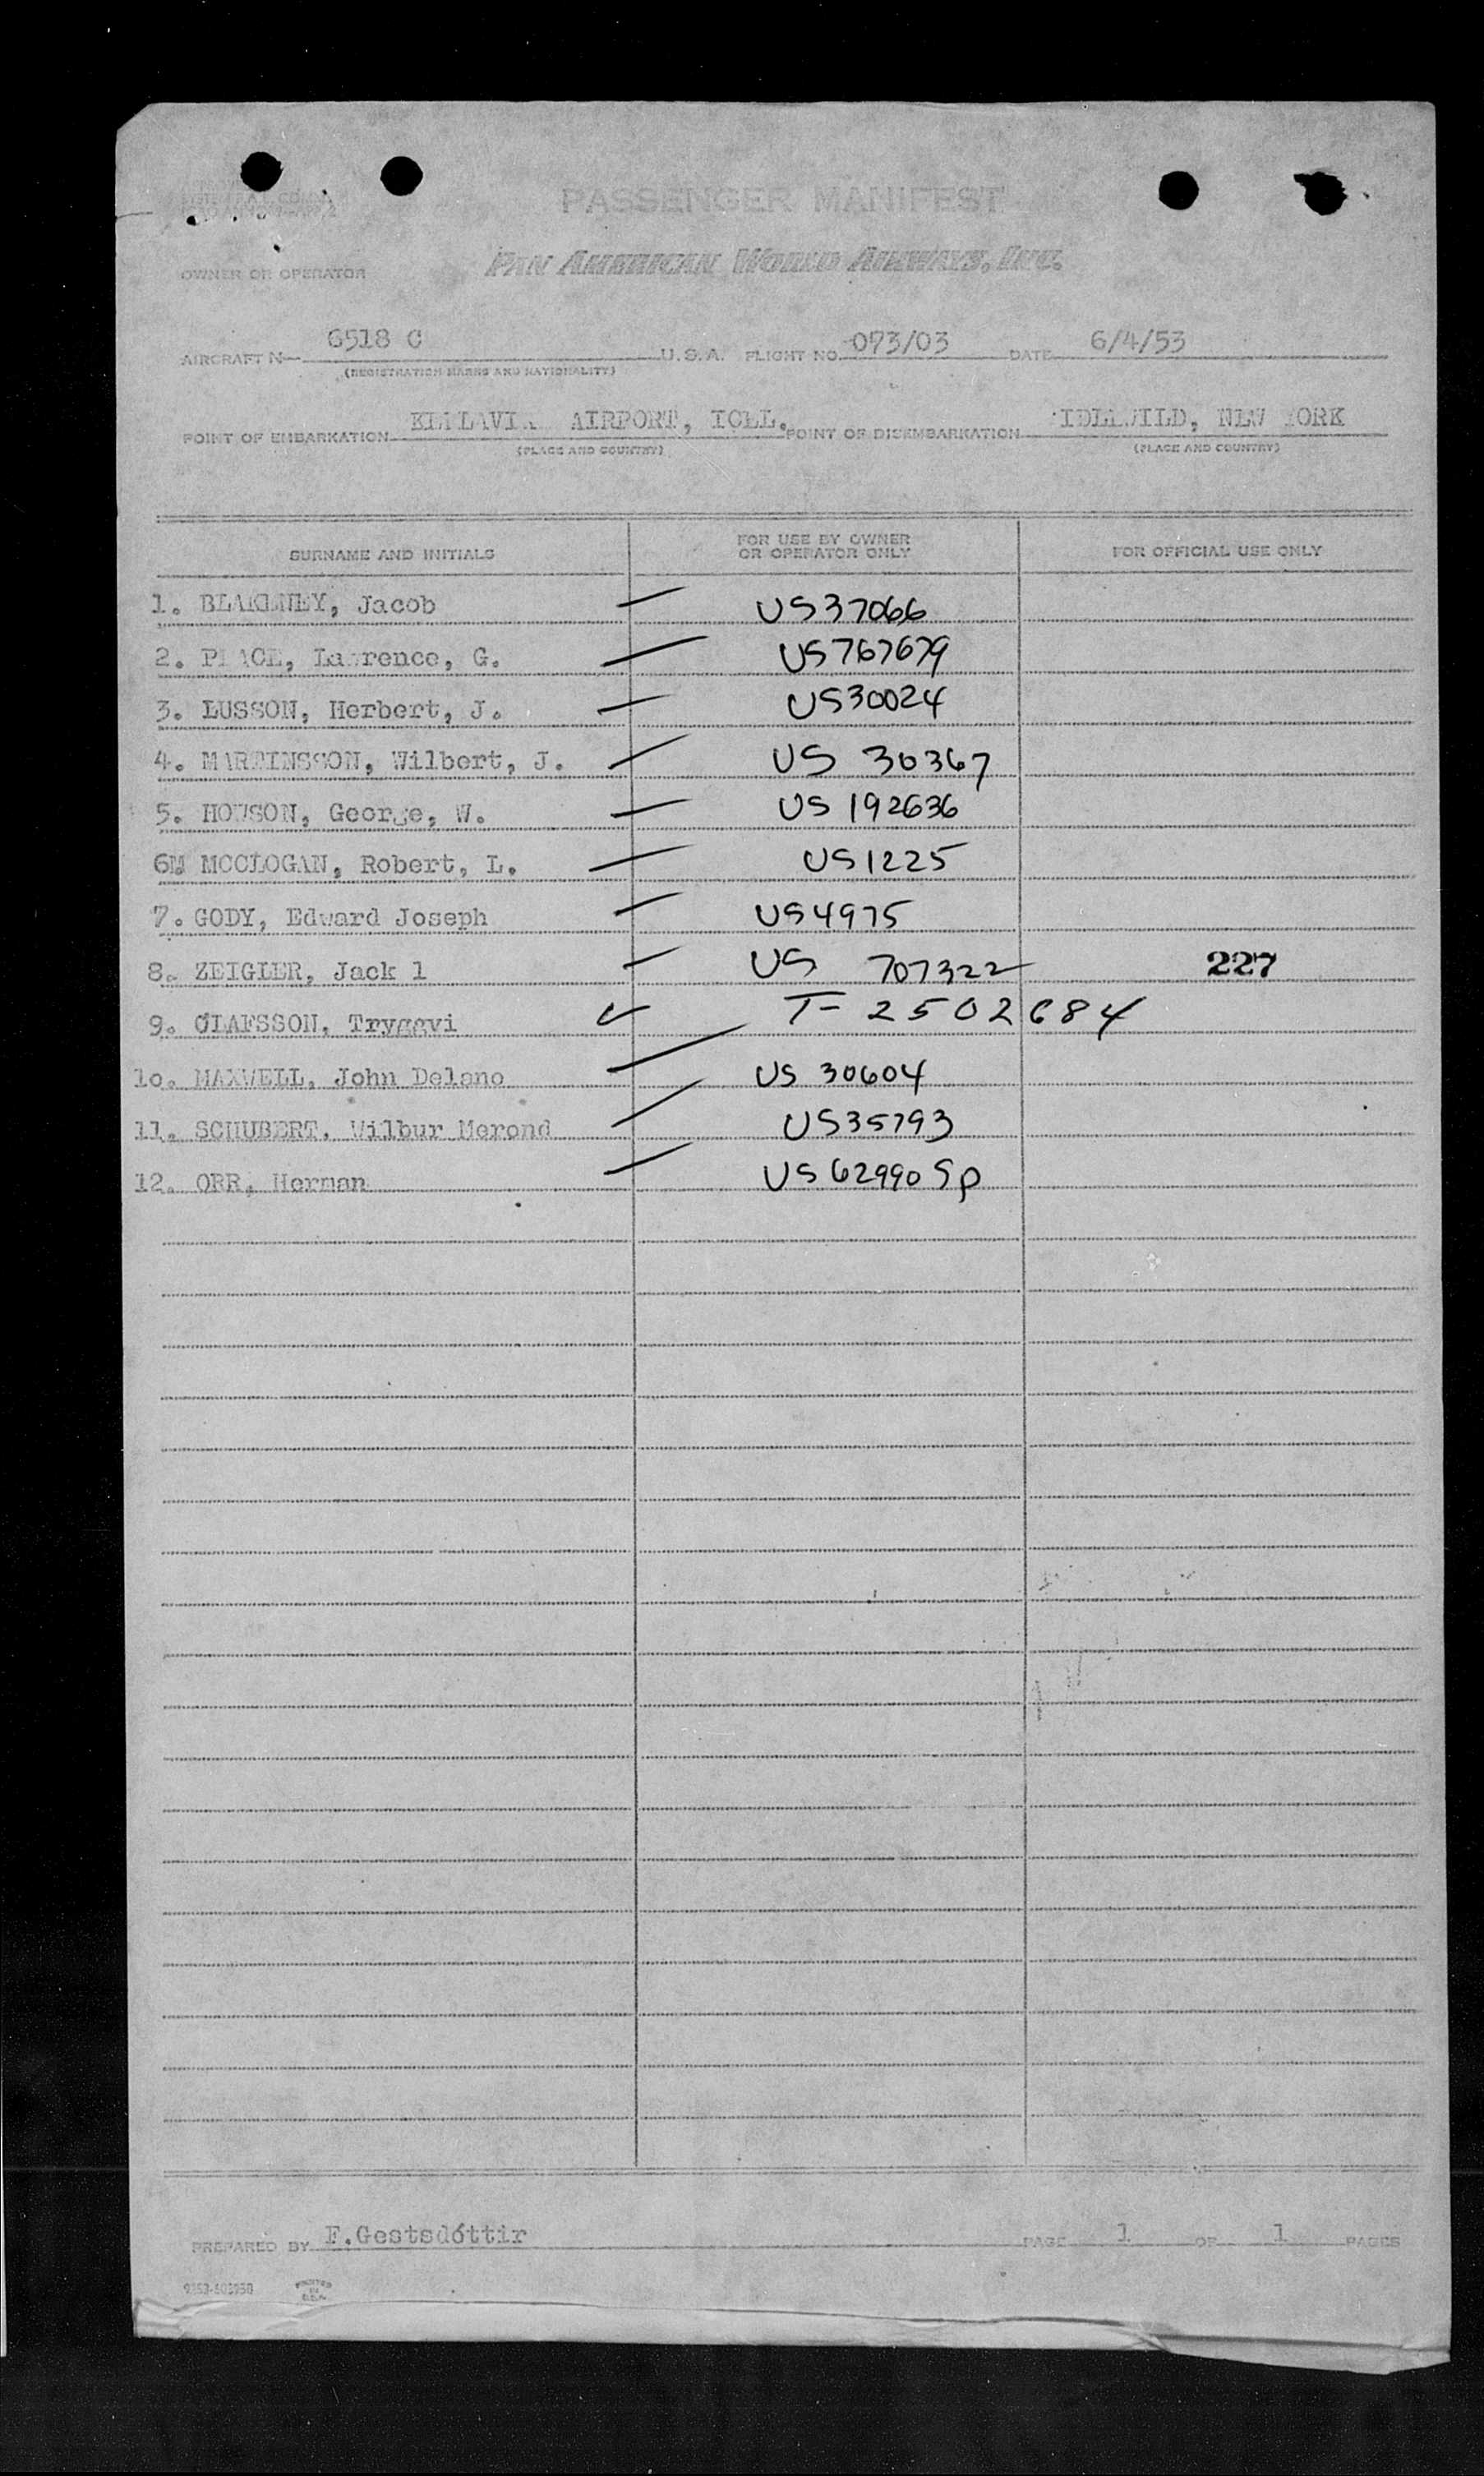 PASSENGER MANIFEST
OWNER OR OPERATOR PAN AMERICAN WORLD AIRWAYS, INC.
AIRCRAFT N— 6518 C U.S.A. FLIGHT NO. 073/03 DATE 6/4/53
(REGISTRATION MARKS AND NATIONALITY)
POINT OF EMBARKATION AIRPORT, ICEL. POINT OF DISEMBARKATION IDLEWILD, NEW YORK
(PLACE AND COUNTRY) (PLACE AND COUNTRY)
SURNAME AND INITIALS FOR USE BY OWNER OR OPERATOR ONLY FOR OFFICIAL USE ONLY
1. BLAKENEY, Jacob US37066
2. Lawrence, G. US767679
3. LUSSON, Herbert, J. US30024
4. MARTINSSON, Wilbert, J. US 30367
5. HOWSON, George, W. US 192636
6M MCCLOGAN, Robert, L. US1225
7. GODY, Edward Joseph US4975
8. ZEIGLER, Jack l US 707322 227
9. OLAFSSON, Tryggvi T- 2502684
1o. MAXWELL, John Delano US 30604
11. SCHUBERT. Wilbur Merond US35793
12. ORR, Herman US62990 Sp
PREPARED BY F.Gestsdóttir PAGE 1 OF 1 PAGES
PRINTED IN U.S.A.